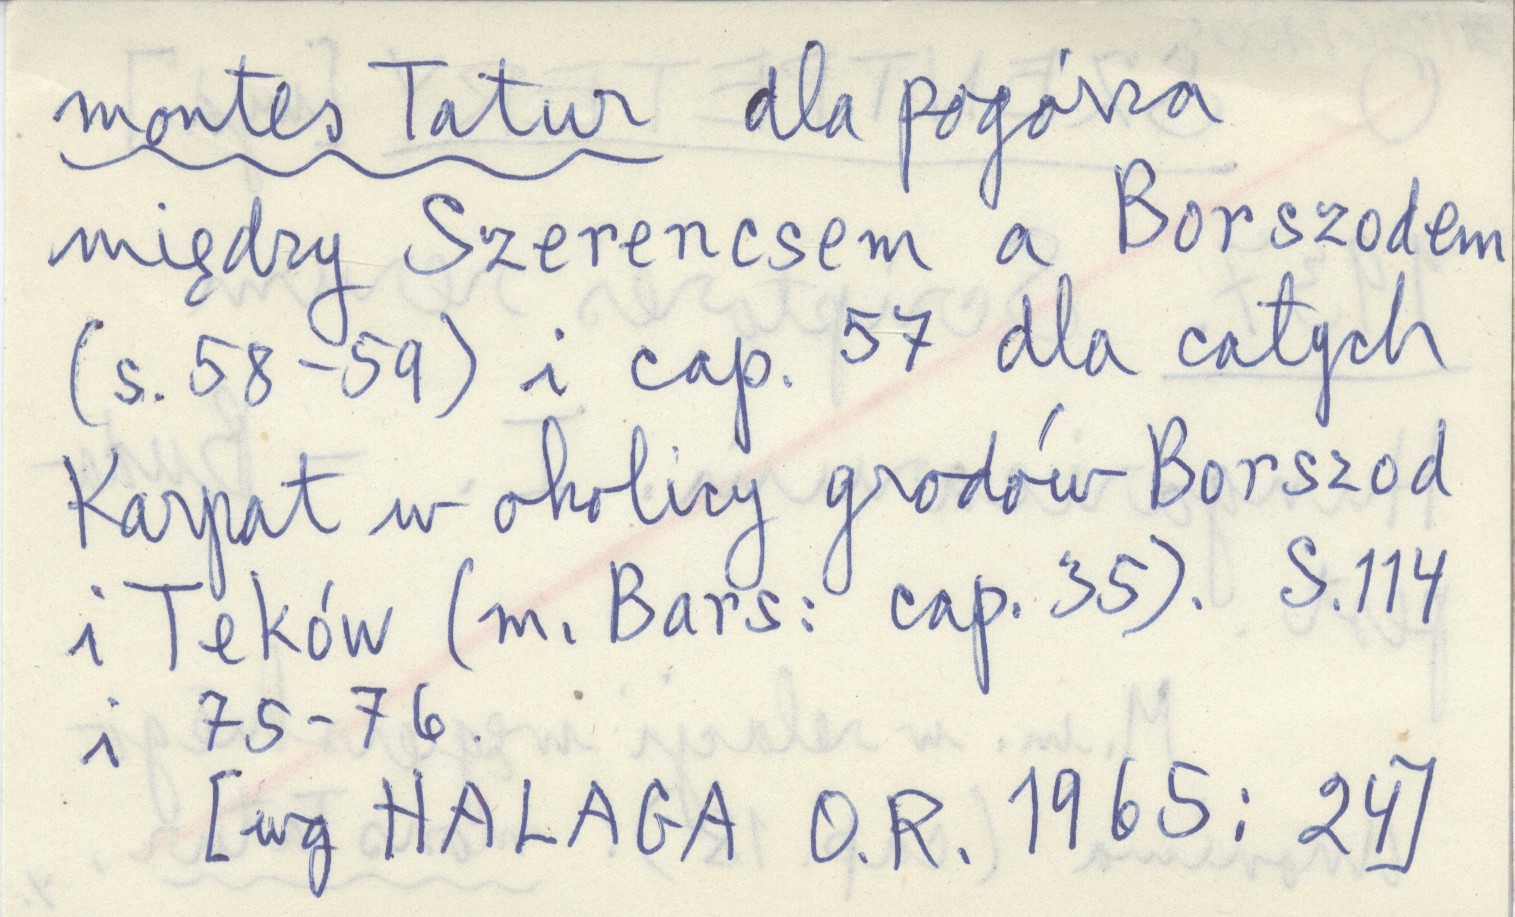 montes Tatur dla pogórza
między Szerencsem a Borszodem
(s. 58-59) i cap. 57 dla całych
Karpat w okolicy grodów Borszod
i Teków (m. Bars: cap. 35). S. 114
i 75-76.
[wg HALAGA O.R. 1965: 24]